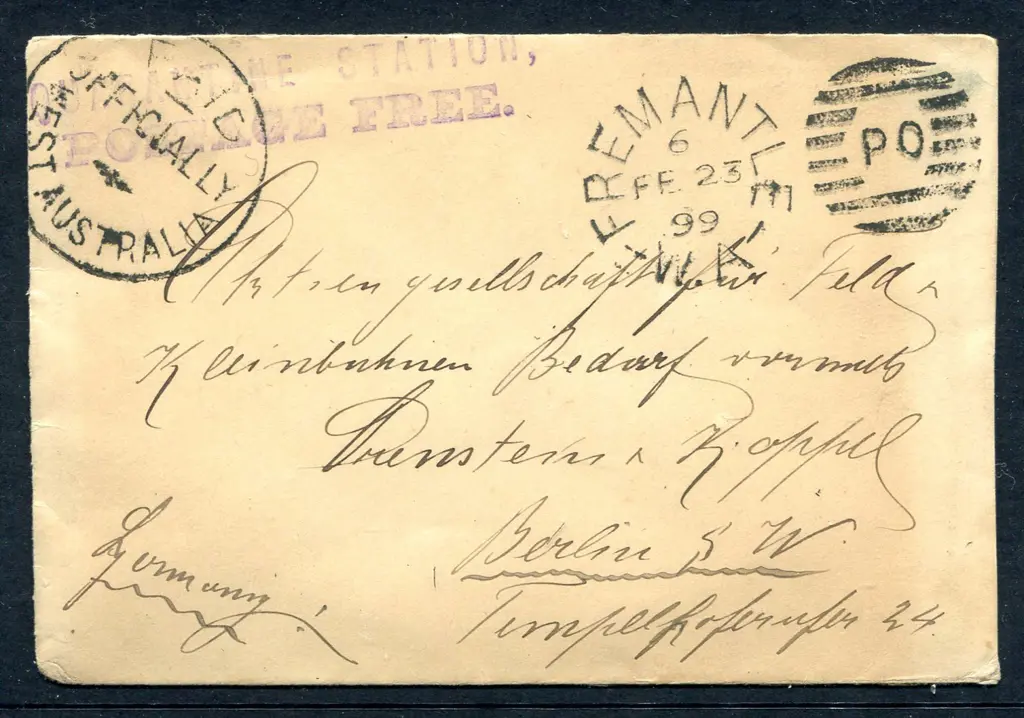 QUARANTINE STATION,
POSTAGE FREE.
PAID
OFFICIALLY
WEST AUSTRALIA
FREMANTLE
6
FE 23
99
W.A
PO
Aktien gesellschaft für Feld &
Kleinbahnen Bedarf vormals
Orenstein & Koppel
Berlin S W.
Tempelhoferufer 24.
Germany!